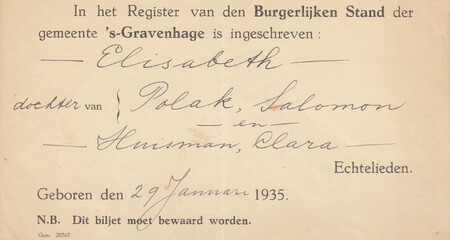 In het Register van den Burgerlijken Stand der
gemeente 's-Gravenhage is ingeschreven:
— Elisabeth —
dochter van { Polak, Salomon
— en —
— Huisman, Clara —
Echtelieden.
Geboren den 29 Januari 1935.
N.B. Dit biljet moet bewaard worden.
Gem. 20767